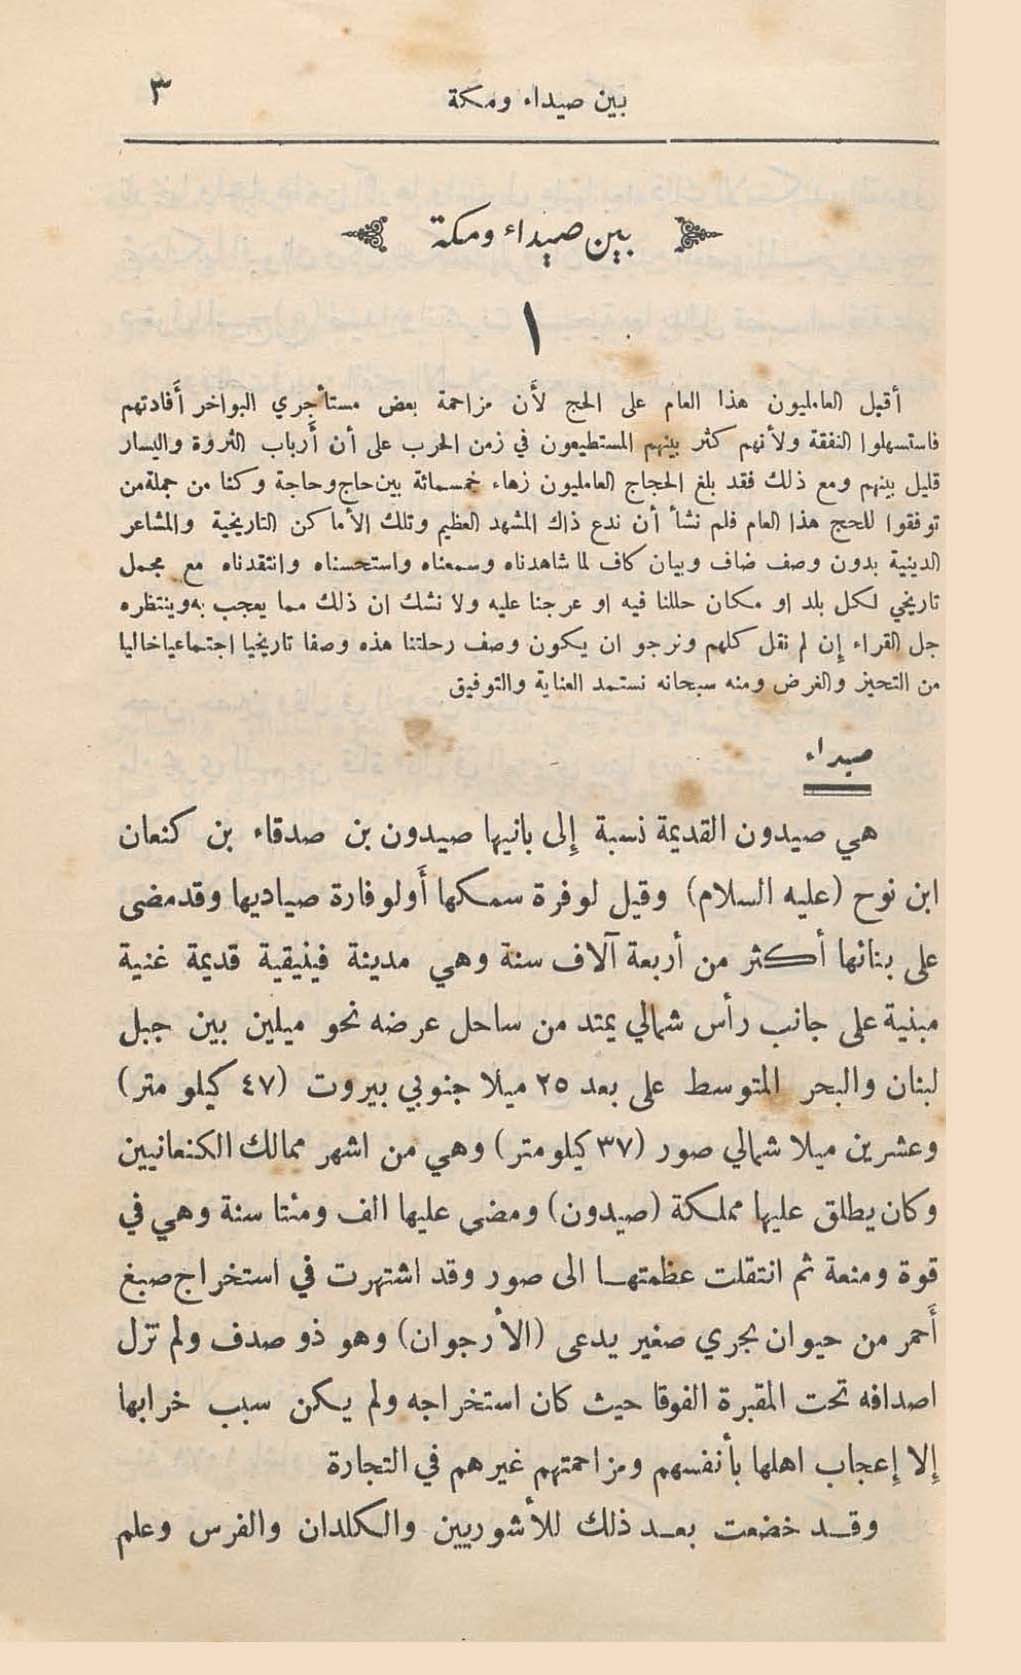 بين صيداء ومكة ٣
بين صيداء ومكة
١
أقبل العامليون هذا العام على الحج لأن مزاحمة بعض مستأجري البواخر أفادتهم
فاستسهلوا النفقة ولأنهم كثر بينهم المستطيعون في زمن الحرب على أن أرباب الثروة واليسار
قليل بينهم ومع ذلك فقد بلغ الحجاج العامليون زهاء خمسمائة بين حاج وحاجة وكنا من جملة من
توفقوا للحج هذا العام فلم نشأ أن ندع ذاك المشهد العظيم وتلك الأماكن التاريخية والمشاعر
الدينية بدون وصف ضاف وبيان كاف لما شاهدناه وسمعناه واستحسناه وانتقدناه مع مجمل
تاريخي لكل بلد او مكان حللنا فيه او عرجنا عليه ولا نشك ان ذلك مما يعجب به وينتظره
جل القراء إن لم نقل كلهم ونرجو ان يكون وصف رحلتنا هذه وصفا تاريخيا اجتماعيا خاليا
من التحيز والغرض ومنه سبحانه نستمد العناية والتوفيق
صيداء
هي صيدون القديمة نسبة إلى بانيها صيدون بن صدقاء بن كنعان
ابن نوح (عليه السلام) وقيل لوفرة سمكها أو لوفارة صياديها وقد مضى
على بنائها أكثر من أربعة آلاف سنة وهي مدينة فينيقية قديمة غنية
مبنية على جانب رأس شمالي يمتد من ساحل عرضه نحو ميلين بين جبل
لبنان والبحر المتوسط على بعد ٢٥ ميلا جنوبي بيروت (٤٧ كيلو متر)
وعشرين ميلا شمالي صور (٣٧ كيلو متر) وهي من اشهر ممالك الكنعانيين
وكان يطلق عليها مملكة (صيدون) ومضى عليها الف ومئتا سنة وهي في
قوة ومنعة ثم انتقلت عظمتها الى صور وقد اشتهرت في استخراج صبغ
أحمر من حيوان بحري صغير يدعى (الأرجوان) وهو ذو صدف ولم تزل
اصدافه تحت المقبرة الفوقا حيث كان استخراجه ولم يكن سبب خرابها
إلا إعجاب اهلها بأنفسهم ومزاحمتهم غيرهم في التجارة
وقد خضعت بعد ذلك للأشوريين والكلدان والفرس وعلم